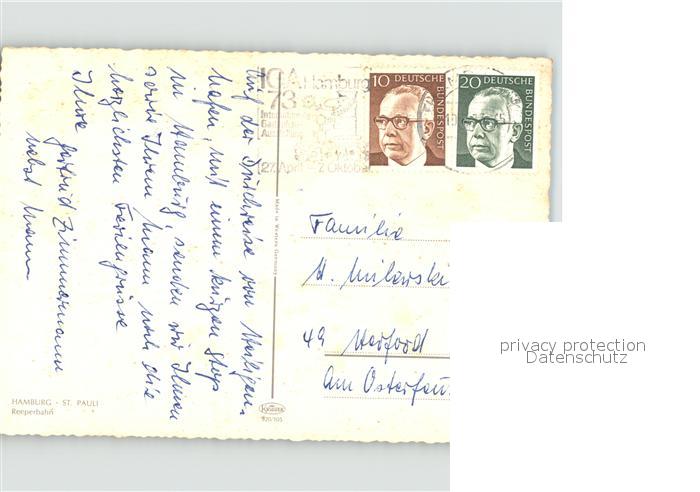 IGA Hamburg
73
27. April - 7. Oktober
10 DEUTSCHE
BUNDESPOST
20 DEUTSCHE
BUNDESPOST
Auf der Durchreise von Heiligen-
hafen, mit einem kurzen Stop
in Hamburg, senden wir Ihnen
sowie Ihrem Mann noch die
herzlichsten Feriengrüsse
Ihre
Gertrud Zimmermann
nebst Mann
Made in Western Germany
Familie
H. Milewski
49 Herford
Am Osterfeu
HAMBURG - ST. PAULI
Reeperbahn
Krüger
920/105
privacy protection
Datenschutz